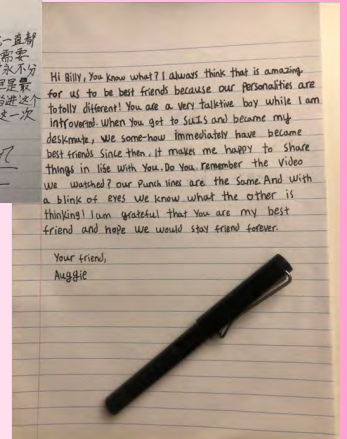 一直都
需要
永不分
是最
进这个
这一次
Hi Billy, You know what? I always think that is amazing
for us to be best friends because our personalities are
totolly different! You are a very talktive boy while I am
introverted. When you got to SUIS and became my
deskmate, we some-how immediately have became
best friends since then. It makes me happy to share
things in life with You. Do You remember the video
we watched? our Punch lines are the Same. And with
a blink of eyes we know what the other is
thinking! I am grateful that You are my best
friend and hope we would stay friend forever.
Your friend,
Auggie